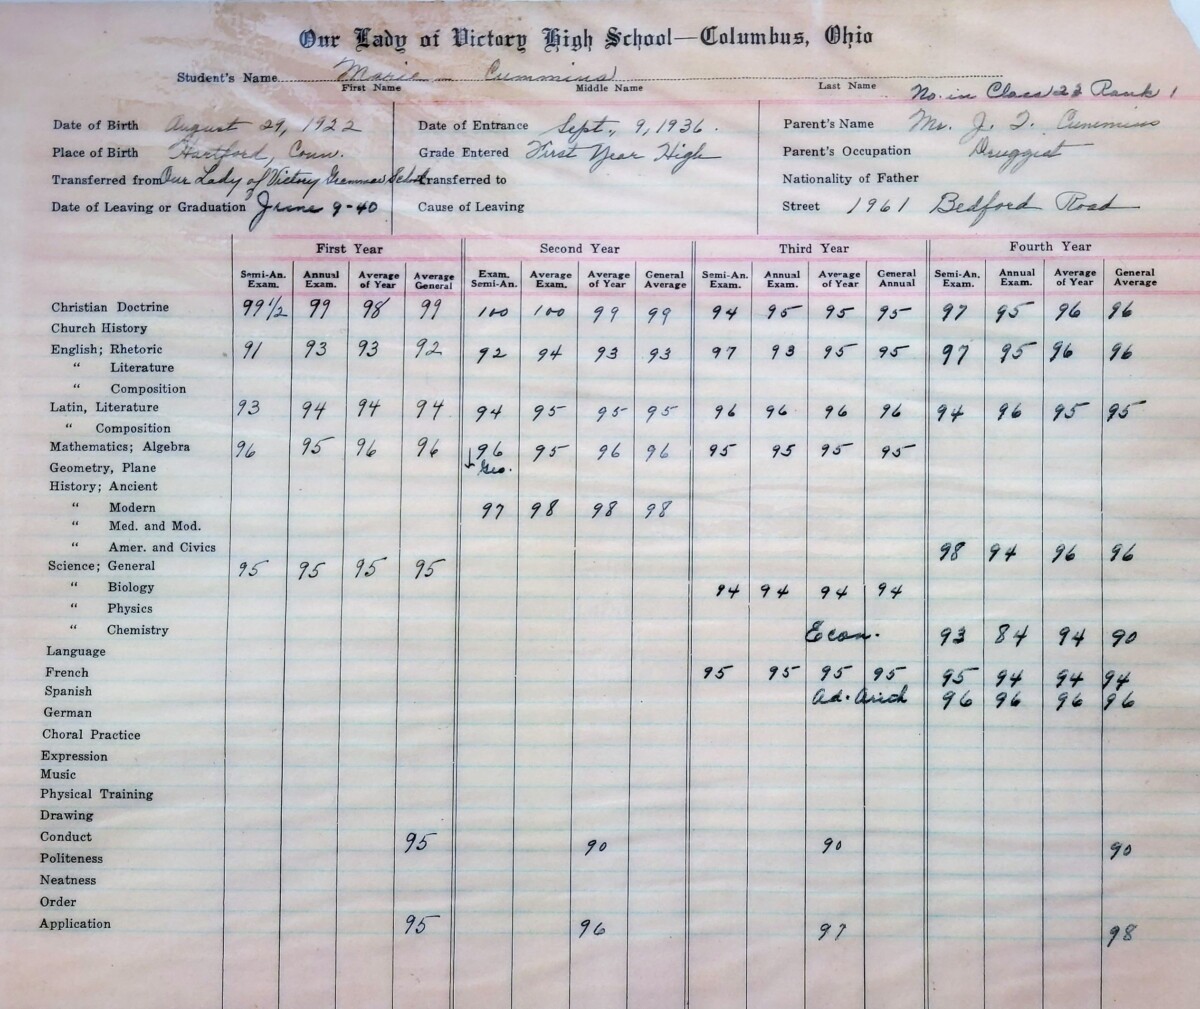 Our Lady of Victory High School—Columbus, Ohio
Student's Name Marie Cummins
First Name Middle Name Last Name No. in Class 23 Rank 1
Date of Birth August 29, 1922 Date of Entrance Sept., 9, 1936. Parent's Name Mr. J. T. Cummins
Place of Birth Hartford, Conn. Grade Entered First Year High Parent's Occupation Druggist
Transferred from Our Lady of Victory Grammar School Transferred to Nationality of Father
Date of Leaving or Graduation June 9-40 Cause of Leaving Street 1961 Bedford Road
First Year Second Year Third Year Fourth Year
Semi-An. Exam. Annual Exam. Average of Year Average General Exam. Semi-An. Average Exam. Average of Year General Average Semi-An. Exam. Annual Exam. Average of Year General Annual Semi-An. Exam. Annual Exam. Average of Year General Average
Christian Doctrine 99 1/2 99 98 99 100 100 99 99 94 95 95 95 97 95 96 96
Church History
English; Rhetoric 91 93 93 92 92 94 93 93 97 93 95 95 97 95 96 96
" Literature
" Composition
Latin, Literature 93 94 94 94 94 95 95 95 96 96 96 96 94 96 95 95
" Composition
Mathematics; Algebra 96 95 96 96 96 95 96 96 95 95 95 95
Geometry, Plane Geo.
History; Ancient
" Modern 97 98 98 98
" Med. and Mod.
" Amer. and Civics 98 94 96 96
Science; General 95 95 95 95
" Biology 94 94 94 94
" Physics
" Chemistry Econ. 93 84 94 90
Language
French 95 95 95 95 95 94 94 94
Spanish Ad. Arith 96 96 96 96
German
Choral Practice
Expression
Music
Physical Training
Drawing
Conduct 95 90 90 90
Politeness
Neatness
Order
Application 95 96 97 98